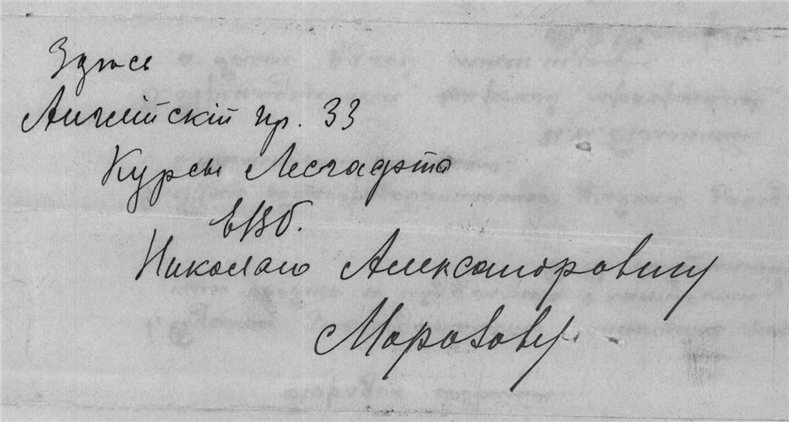 Здѣсь
Англійскій пр. 33
Курсы Лесгафта
ЕВб.
Николаю Александровичу
Морозову.